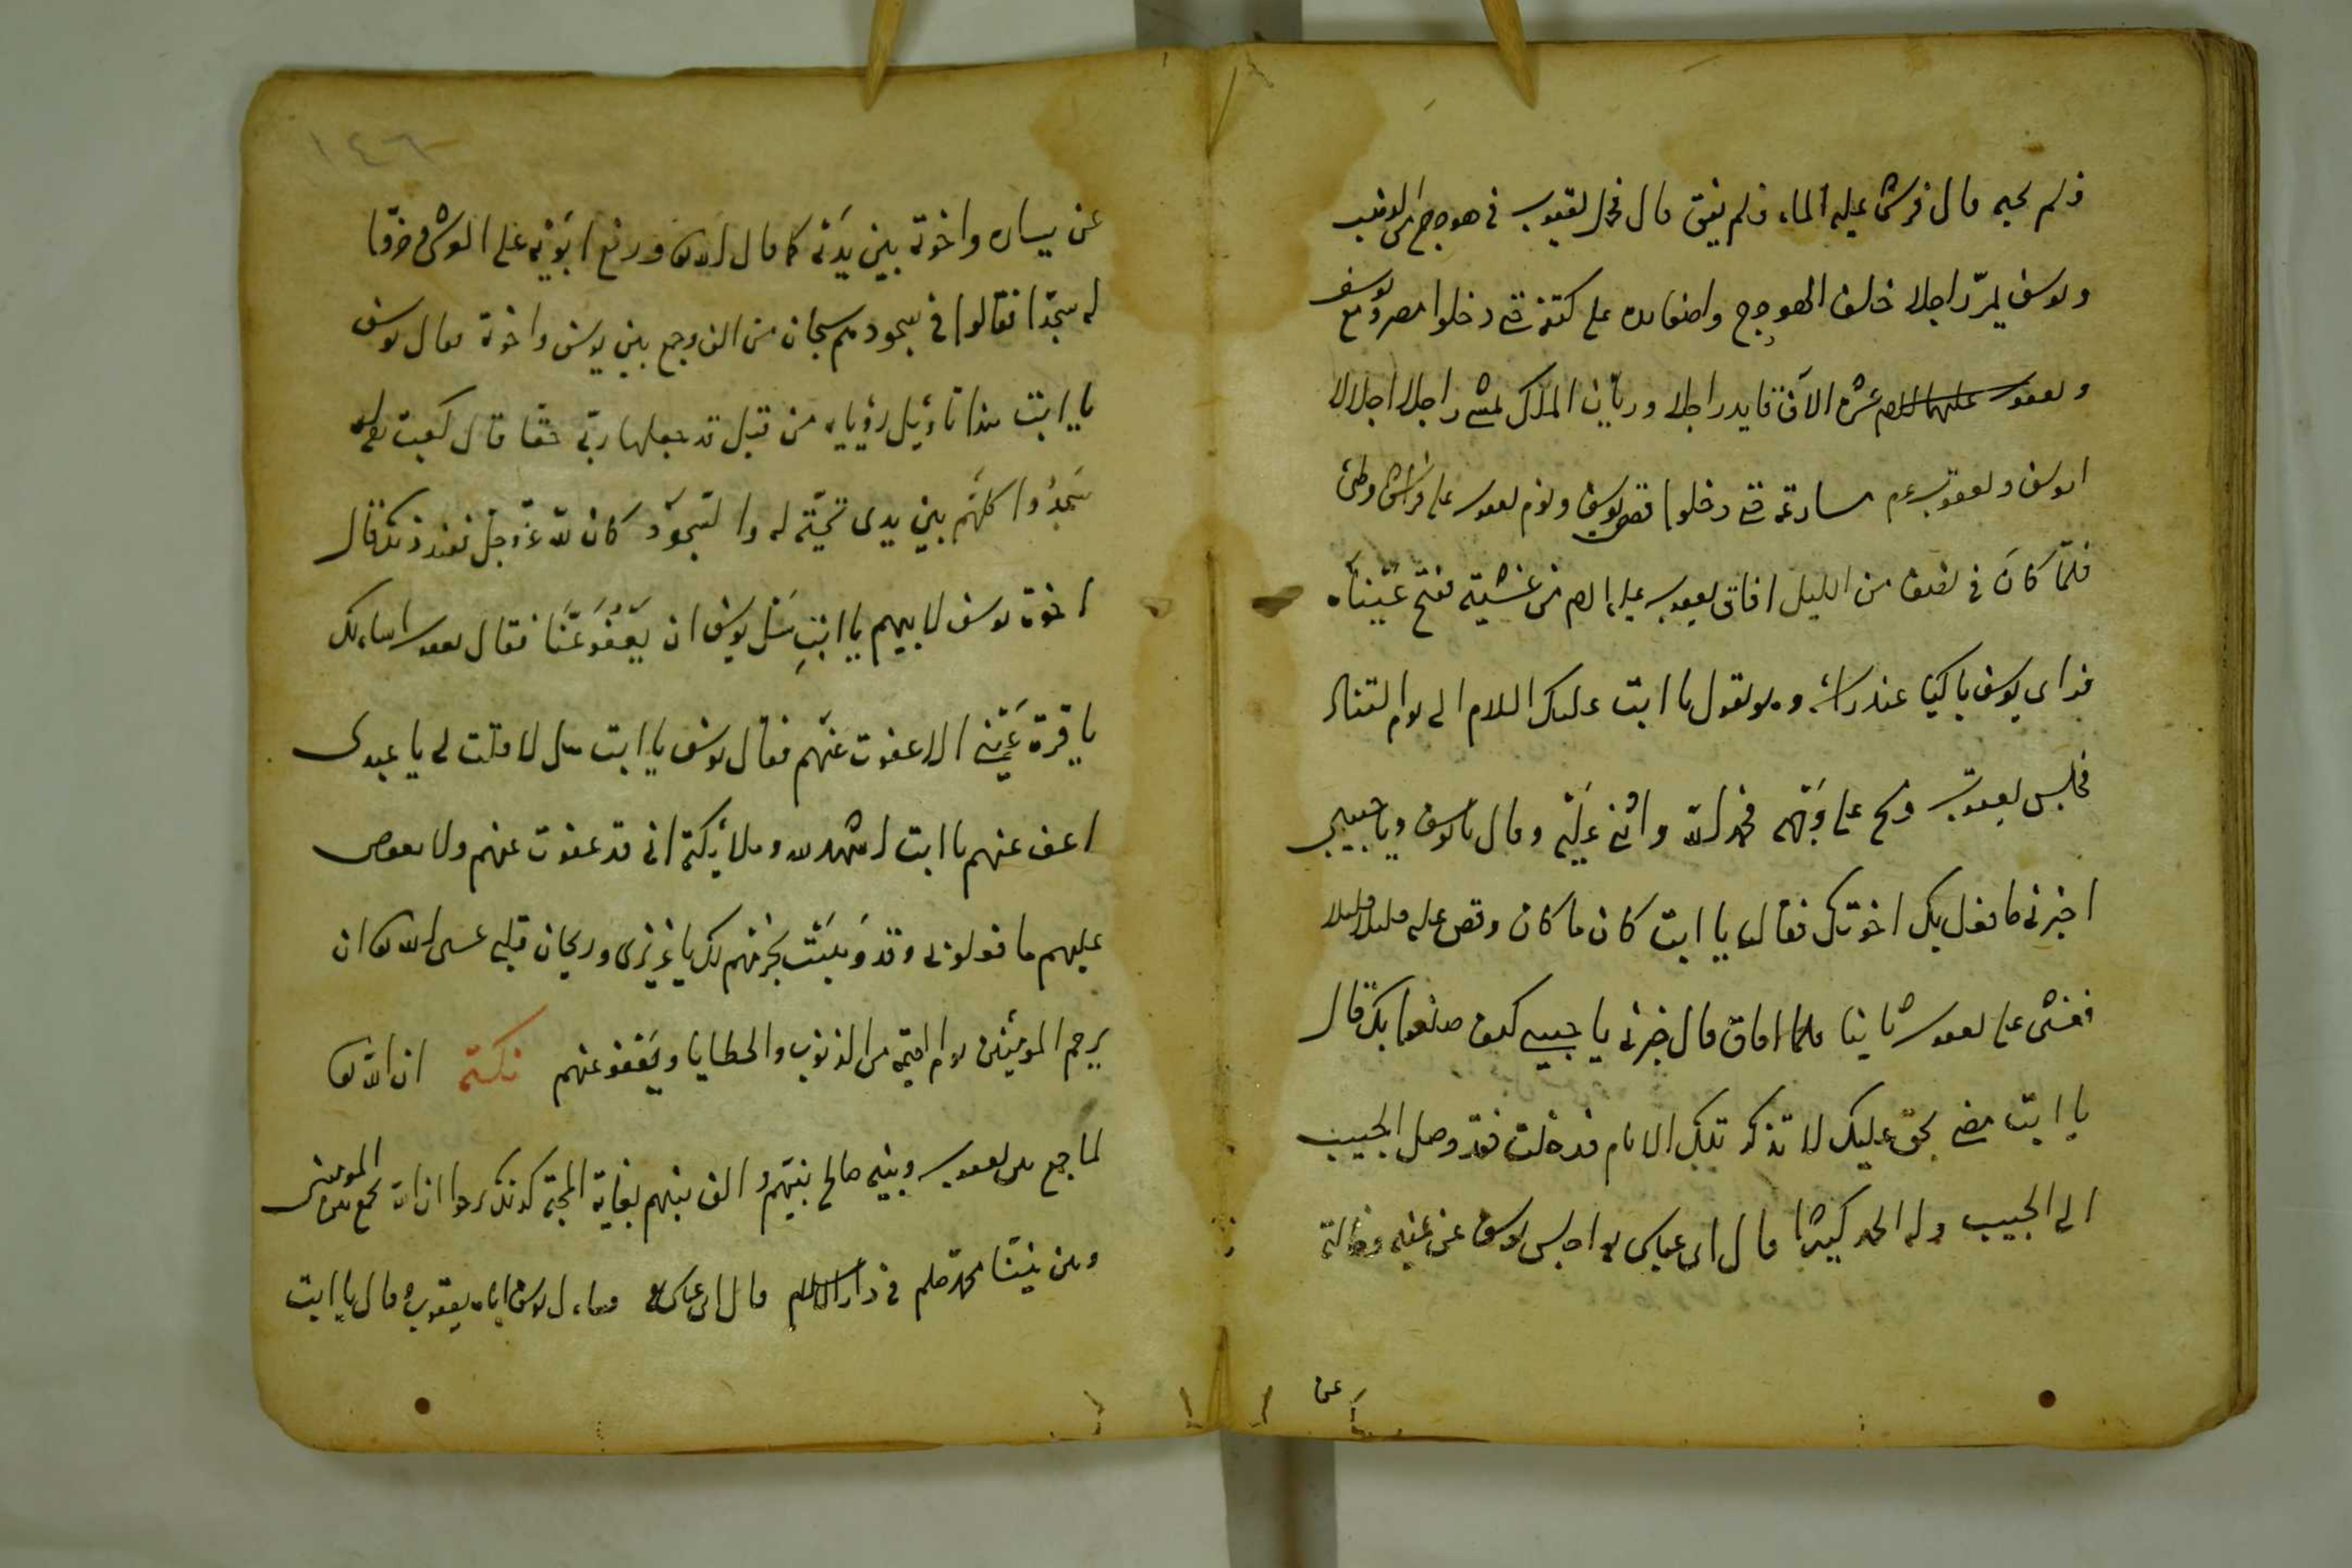 فلم يجبه قال فرش عليه الماء فلم يفق قال فحمل يعقوب في هودج
ويوسف يمرّ راجلا خلف الهودج واضعا يده على كتفه حتى دخلوا مصر ومع يوسف
ويعقوب عليهما السلم عشرة الاف قايد راجلا وريّان الملك يمشي راجلا اجلالا
ليوسف ويعقوب عم حتى دخلوا قصر يوسف ونوم يعقوب على فراش وطئ
فلمّا كان في نصف من الليل افاق يعقوب عليه السلم من غشيته ففتح عيناه
فراى يوسف باكيا عند راسه وهو يقول يا ابت عليك السلام الى يوم التناد
فجلس يعقوب ومسح على وجهه فحمد الله واثنى عليه وقال يا يوسف ويا حبيبي
اخبرني ما فعل بك اخوتك فقال يا ابت كان ما كان وقص عليه قليلا قليلا
فغشى على يعقوب ثانيا فلما افاق قال خبرني يا حبيبي كيف صنعوا بك قال
يا ابت مضى بحق عليك لا تذكر تلك الايام قد خلت فقد وصل الحبيب
الى الحبيب وله الحمد كثيرا قال ابن عباس اجلس يوسف عن يمينه وخالته
عن
١٤٦
عن يساره واخوته بين يديه كما قال الله تعا ورفع ابويه على العرش وخرّوا
له سجّدا فقالوا في سجودهم سبحان من الف وجمع بين يوسف واخوته فقال يوسف
يا ابت هذا تأويل رؤياي من قبل قد جعلها ربّي حقّا قال كعب
سجدوا كلهم بين يدى تحيّة له والسّجود كان لله عزّ وجلّ فعند ذلك قال
اخوة يوسف لابيهم يا ابت سل يوسف ان يعفو عنّا فقال يعقوب اسالك
يا قرة عيني الا عفوت عنهم فقال يوسف يا ابت هل لا قلت لي يا عبدى
اعف عنهم يا ابت اشهد لله وملائكته اني قد عفوت عنهم ولا
عليهم ما فعلوني وقد وهبت بجرمهم لك يا عزيزى وريحان قلبي عسى الله تعا ان
يرحم المومنين يوم القيمة من الذنوب والخطايا ويعفو عنهم نكتة ان الله تعا
لما جمع بين يعقوب وبنيه صالح بينهم والف بينهم بغاية المحبّة كذلك نرجوا ان الله يجمع بين المومنين
وبين نبيّنا محمد صلم في دار السلام قال ابن عباس يوسف اباه يعقوب وقال يا ابت